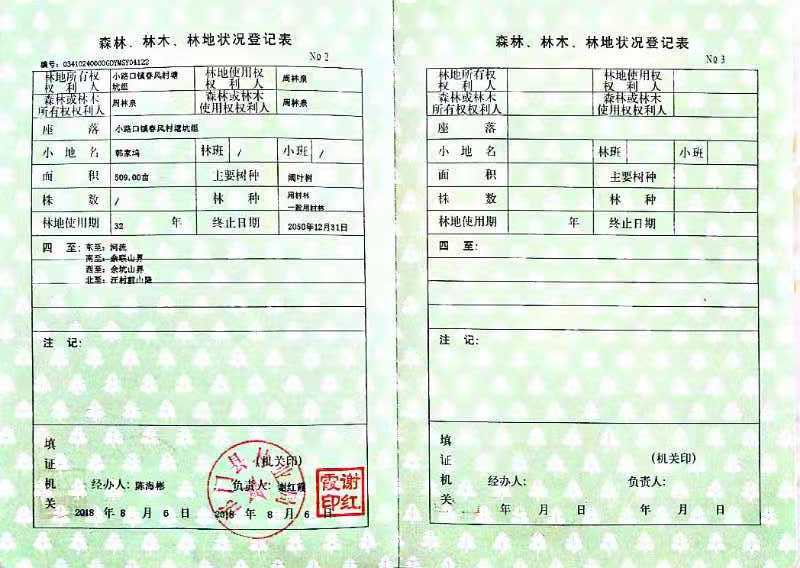 森林、林木、林地状况登记表
No 2
林地所有权权利人 小路口镇春风村塘坑组 林地使用权权利人 周林泉
森林或林木所有权权利人 周林泉 森林或林木使用权权利人
座落 小路口镇春风村塘坑组
小地名 韩家坞 林班 / 小班 /
面积 509.00亩 主要树种 阔叶树
株数 / 林种 用材林 一般用材林
林地使用期 32 年 终止日期 2050年12月31日
四至: 东至: 河流
南至: 余联山界
西至: 余坑山界
北至: 汪村前山降
注记:
填证机关
(机关印)
经办人: 陈海彬 负责人: 谢红霞
谢红霞印
2018 年 8 月 6 日 2018 年 8 月 6 日
森林、林木、林地状况登记表
No 3
林地所有权权利人 林地使用权权利人
森林或林木所有权权利人 森林或林木使用权权利人
座落
小地名 林班 小班
面积 主要树种
株数 林种
林地使用期 年 终止日期
四至:
注记:
填证机关
(机关印)
经办人: 负责人:
年 月 日 年 月 日